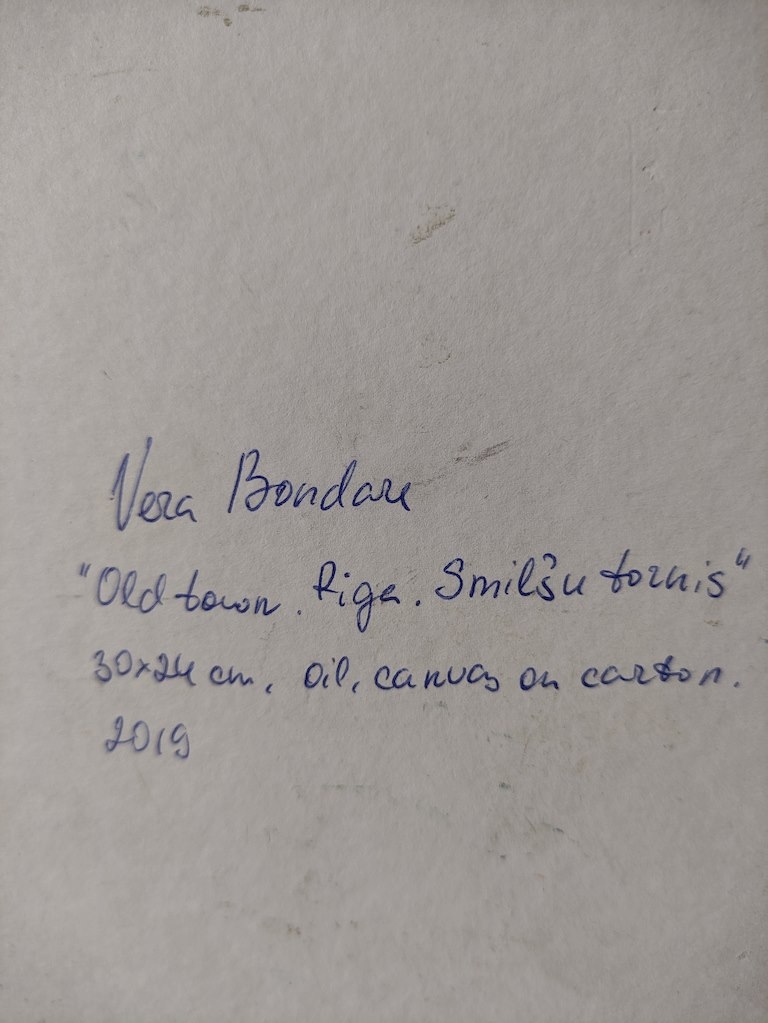 Vera Bondare
"Old town. Riga. Smilšu tornis"
30x24 cm, oil, canvas on carton.
2019